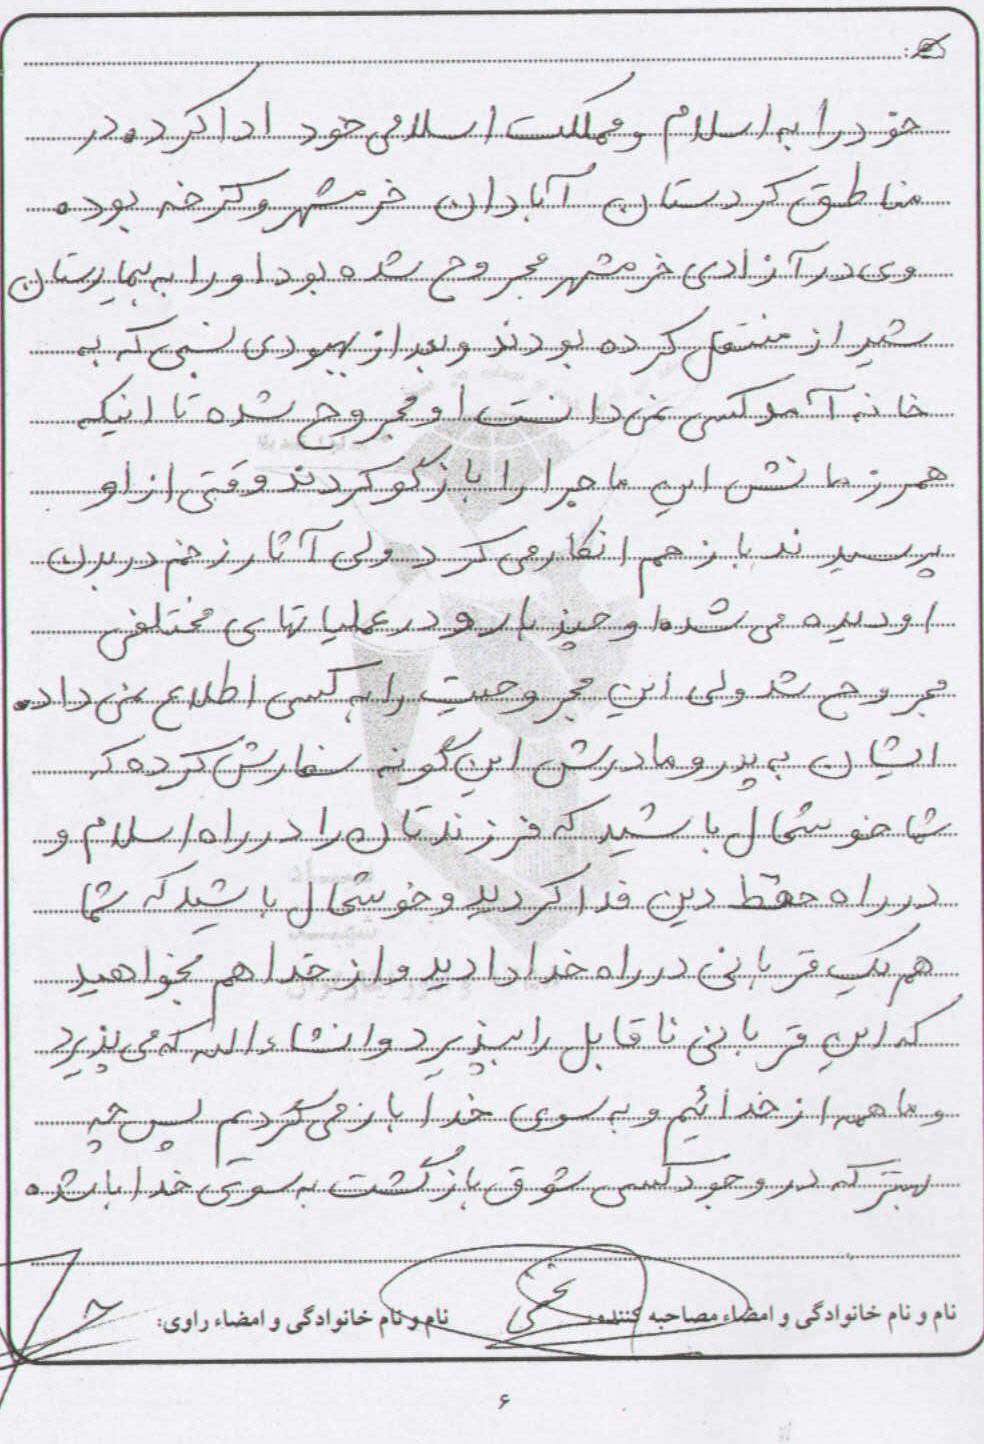 حق خود را به اسلام و مملکت اسلامی خود ادا کرده. در
مناطق کردستان آبادان خرمشهر و کرخه بوده
وی در آزادی خرمشهر مجروح شده بود او را به بیمارستان
شیراز منتقل کرده بودند و بعد از بهبودی نسبی که به
خانه آمد کسی نمی دانست او مجروح شده تا اینکه
همرزمانش این ماجرا را بازگو کردند وقتی از او
پرسیدند باز هم انکار می کرد ولی آثار زخم در بدن
او دیده می شد. او چند بار و در عملیاتهای مختلفی
مجروح شد ولی این مجروحیت را به کسی اطلاع نمی داد.
ایشان به پدر و مادرش این گونه سفارش کرده که
شما خوشحال باشید که فرزندتان را در راه اسلام و
در راه حفظ دین فدا کردید و خوشحال باشید که شما
هم یک قربانی در راه خدا دادید و از خدا هم بخواهید
که این قربانی ناقابل را بپذیرد و انشاءالله که می پذیرد
و ما همه از خدائیم و به سوی خدا باز می گردیم پس چه
بهتر که در وجود کسی شوق بازگشت به سوی خدا باشد.
نام و نام خانوادگی و امضاء مصاحبه کننده: نام و نام خانوادگی و امضاء راوی:
۶